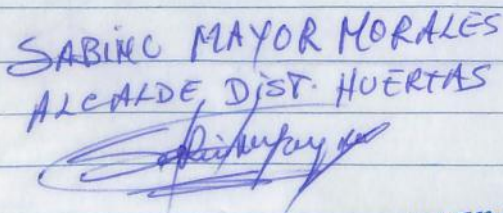 SABINO MAYOR MORALES
ALCALDE DIST. HUERTAS